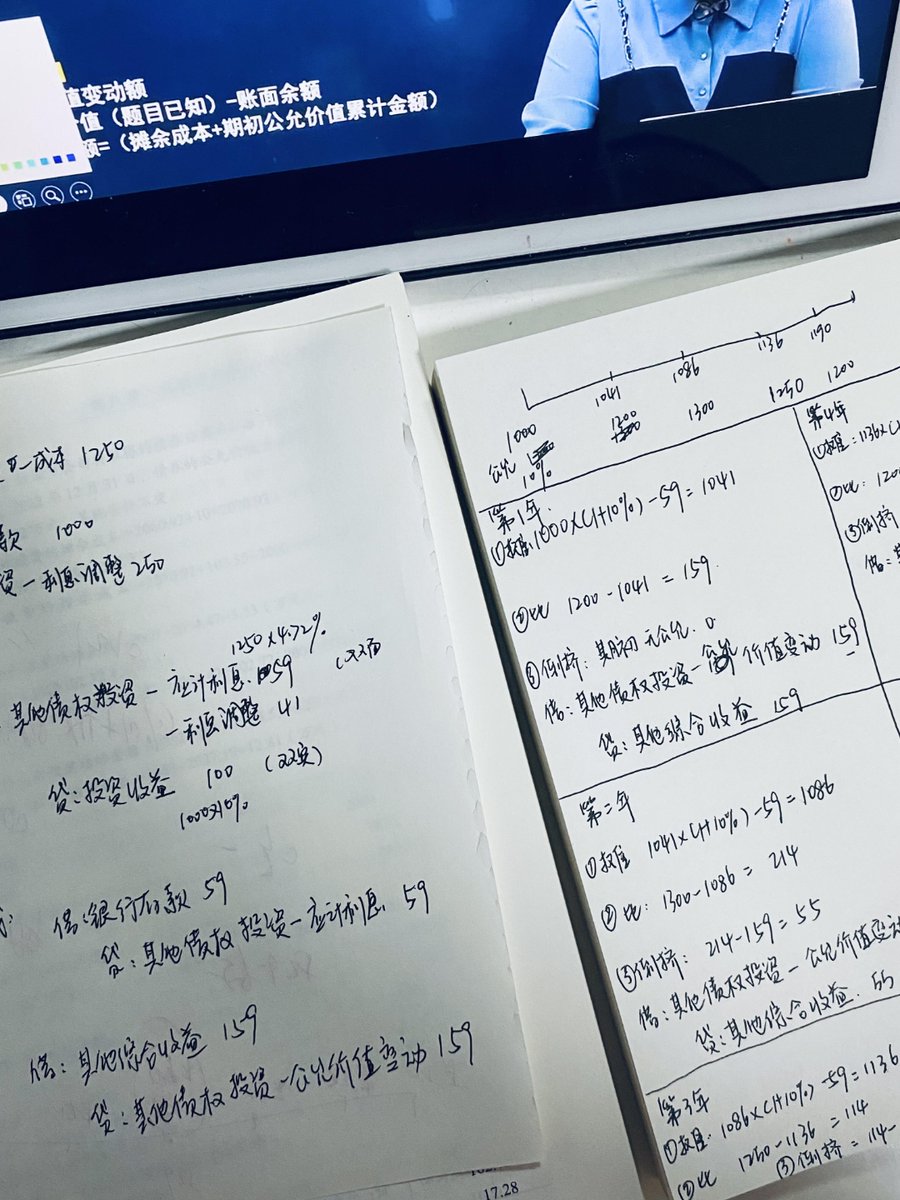 值变动额
值（题目已知）-账面余额
额=（摊余成本+期初公允价值累计金额）
成本 1250
款 1000
资-利息调整 250
1250×4.72%
其他债权投资-应计利息 59
-利息调整 41
贷:投资收益 100
1000×10%
借:银行存款 59
贷:其他债权投资-应计利息 59
借:其他综合收益 159
贷:其他债权投资-公允价值变动 159
17.28
1000 1041 1086 1136 1190
公允 1200 1300 1250 1200
10%
第1年.
①摊余:1000×(1+10%)-59=1041
②比 1200-1041=159.
③倒挤:其期初无公允.0
借:其他债权投资-公允价值变动 159
贷:其他综合收益 159
第二年
①摊余 1041×(1+10%)-59=1086
②比: 1300-1086= 214
③倒挤: 214-159=55
借:其他债权投资-公允价值变动
贷:其他综合收益. 55
第3年
①摊余: 1086×(1+10%)-59=1136
②比 1250-1136=114
③倒挤=114-
第4年
①摊余=1136×(
②比: 120
③倒挤
借:其